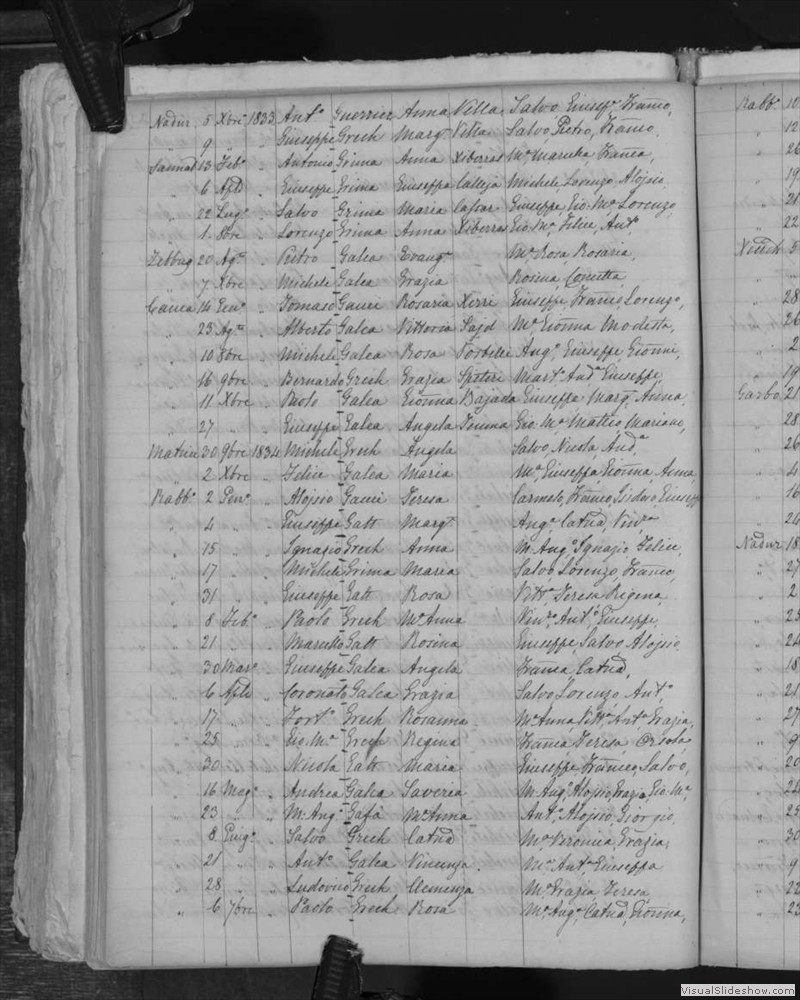 Nadur 5 Xbre 1833 Ant.o Guerrier Anna Villa Salvo, Giusep.e Franco,
" 9 " " Giuseppe Grech Marg.a Villa Salvo Pietro, Franco,
Sannat 13 Feb.o " Antonio Grima Anna Xiberras M.a Maruzza Franca,
" 6 Aple " Giuseppe Grima Giuseppa Calleja Michele, Lorenzo, Aloisio,
" 22 Lug.o " Salvo Grima Maria Giuseppe, Gio: M.a Lorenzo,
" 1 8bre " Lorenzo Grima Anna Xiberras Gio: M.a Felice, Ant.o
Zebbug 20 Ag.to " Pietro Galea Evang.a M.a Rosa, Rosaria,
" 7 Xbre " Michele Galea Grazia Rosina, Concetta,
14 Gen.o " Tomaso Gauci Rosaria Xerri Giuseppe, Franco, Lorenzo,
" 25 Ag.to " Alberto Galea Vittoria Sajd M.a Gioanna Modesta,
" 10 8bre " Michele Galea Rosa Portelli Ang.o Giuseppe Gioanni,
" 16 9bre " Bernardo Grech Grazia Spiteri Mart.o And.a Giuseppe,
" 11 Xbre " Paolo Galea Gioanna Bajada Giuseppe Marg.a Anna,
" 27 " " Giuseppe Galea Angela Gio: M.a Matteo, Mariano,
30 9bre 1834 Michele Grech Angela Salvo, Nicola, And.a
" 2 Xbre " Felice Galea Maria M.a Giuseppa, Gioanna, Anna,
Rabb.o 2 Gen.o " Aloisio Gauci Teresa Carmelo, Franco, Isidoro, Giusepp
" 4 " " Giuseppe Gatt Marg.a Ang.a Catna, Vin.za
" 15 " " Ignazio Grech Anna M: Ang.o Ignazio, Felice,
" 17 " " Michele Grima Maria Salvo, Lorenzo, Franco,
" 31 " " Giuseppe Gatt Rosa Vitt.a Teresa Regina,
" 8 Feb.o " Paolo Grech M.a Anna Vin.zo Ant.o Giuseppe,
" 21 " " Marcello Gatt Rosina Giuseppe, Salvo, Aloisio,
" 30 Mar.o " Giuseppe Galea Angela Franca Catna,
" 6 Aple " Coronato Galea Grazia Salvo Lorenzo, Ant.o
" 17 " " Fort.o Grech Rosanna M.a Anna, Vitt.a Ant.a Grazia,
" 25 " " Gio: M.a Grech Regina Franca Teresa, Orsola,
" 30 " " Nicola Gatt Maria Giuseppe, Franco, Salvo,
" 16 Mag.o " Andrea Galea Saveria M: Ang.o Aloisio, Grazia, Gio: M.a
" 23 " " M: Ang.o Gafà M.a Anna Ant.o Aloisio, Giorgio,
" 8 Giug.o " Salvo Grech Catna M.a Veronica, Grazia,
" 21 " " Ant.o Galea Vincenza M.a Ant.a Giuseppa
" 28 " " Ludovico Grech Clemenza M.a Grazia Teresa,
" 6 7bre " Paolo Grech Rosa M.a Ang.a Catna, Gioanna,
Rabb.o 10
12
26
" 19
" 21
" 22
5
"
" 28
" 26
" 2
" 19
Garbo 21
" 28
" 26
" 4
" 16
" 24
Nadur 18
" 27
" 2
" 23
" 24
" 18
" 21
" 27
" 9
" 20
" 24
" 25
" 30
" 9
" 22
" 23
VisualSlideshow.com